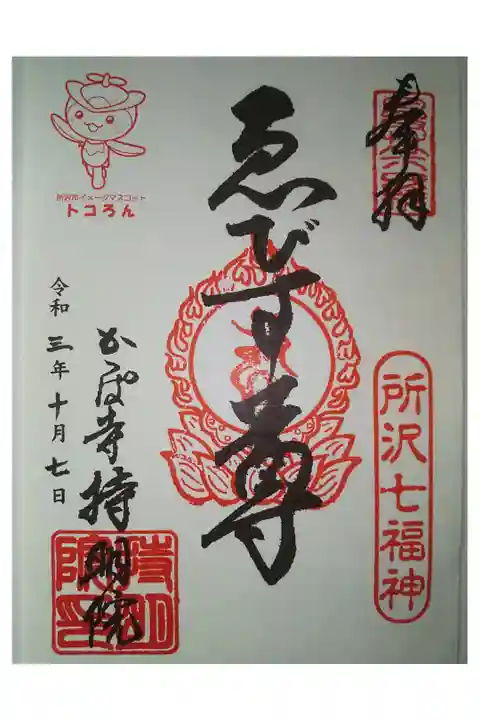 奉拝
所沢七福神
ゑびす尊
かっぱ寺持明院
持明院印
令和三年十月七日
所沢市イメージマスコット
トコろん